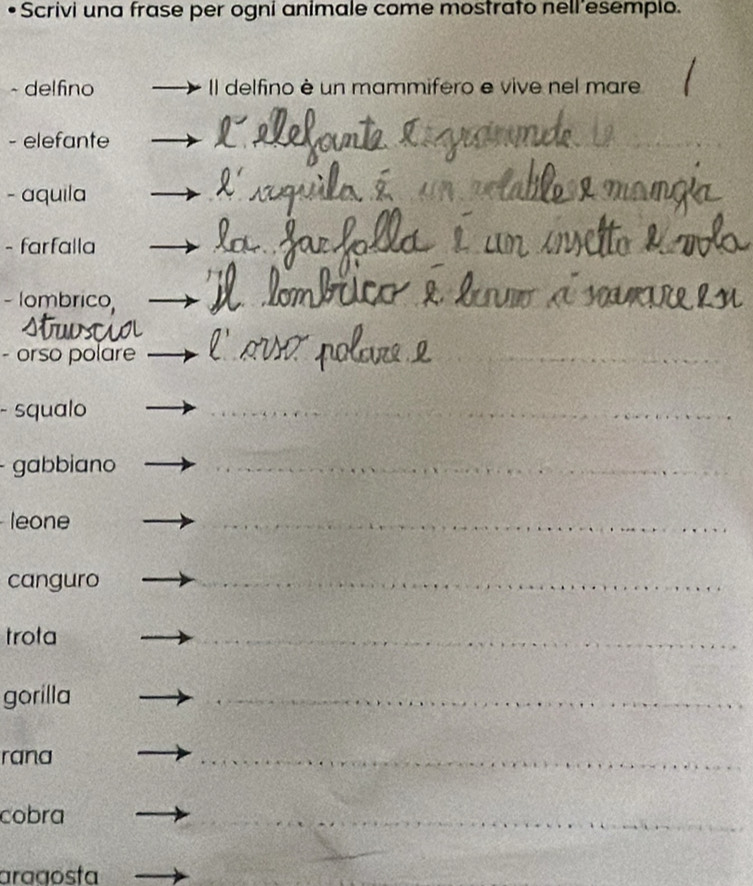 • Scrivi una frase per ogni animale come mostrato nell'esempio.
- delfino → Il delfino è un mammifero e vive nel mare 1
- elefante → l'elefante
- aquila → l'aquila è un e mangia
- farfalla → la farfalla è un insetto e vola
- lombrico → il lombrico è
struscia
- orso polare → l'orso polare e
- squalo →
- gabbiano →
- leone →
canguro →
trota →
gorilla →
rana →
cobra →
aragosta →